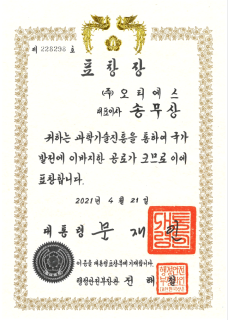 제 228298 호
표 창 장
(주) 오티에스
대표이사 송 무 상
귀하는 과학기술진흥을 통하여 국가
발전에 이바지한 공로가 크므로 이에
표창합니다.
2021년 4월 21일
대통령 문 재 인
이 증을 대통령표창부에 기재합니다.
행정안전부장관 전 해 철